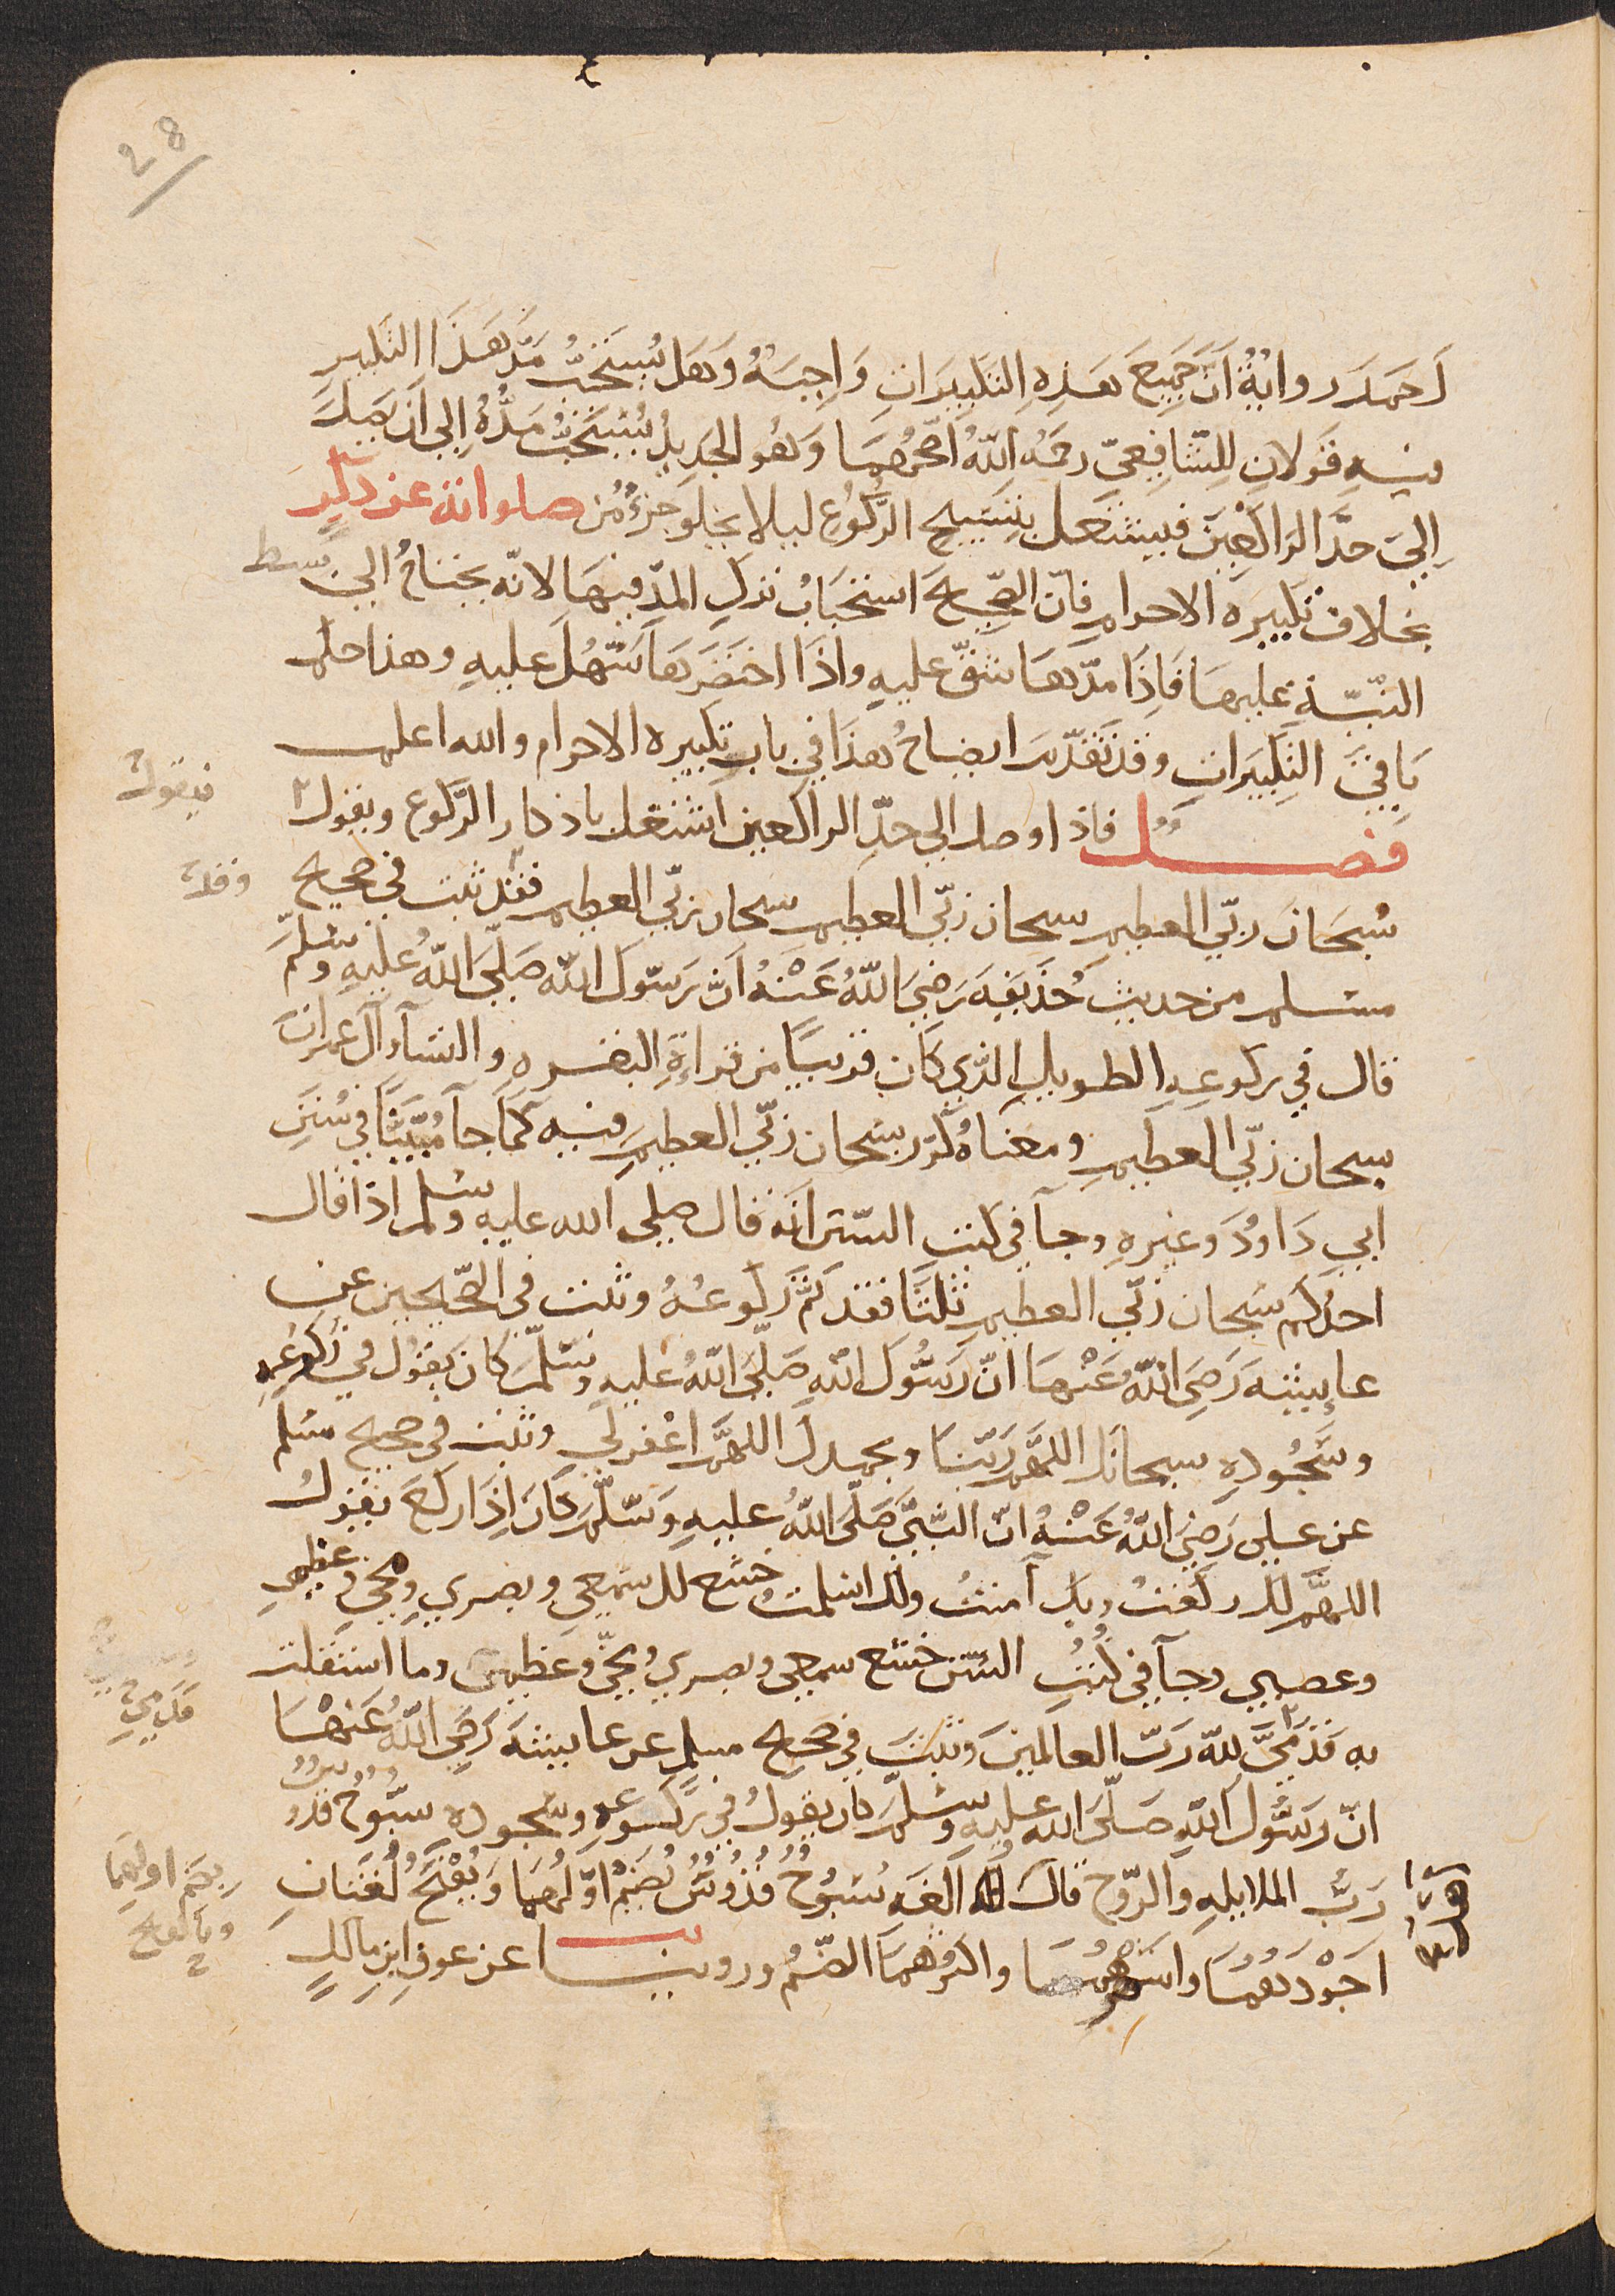 28
احمد رواية أن جميع هذه التكبيرات واجبة وهل يستحب مد هذا التكبير
فيه قولان للشافعي رحمه الله أصحهما وهو الجديد يستحب مده إلي أن يصل
إلي حد الراكعين فيشتغل بتسبيح الركوع ليلا يخلو جزء من صلواته عن ذكر
بخلاف تكبيرة الاحرام فان الصحيح استحباب ترك المد فيها لانه يحتاج الي بسط
النية عليها فإذا مدها شق عليه واذا اختصرها سهل عليه وهذا حكم
باقي التكبيرات وقد تقدم ايضاح هذا في باب تكبيرة الاحرام والله اعلم
فصل فاذا وصل الي حد الراكعين اشتغل باذكار الركوع ويقول
فيقول
سبحان ربي العظيم سبحان ربي العظيم سبحان ربي العظيم فقد ثبت في صحيح
وقد
مسلم من حديث حذيفة رضي الله عنه أن رسول الله صلي الله عليه وسلم
قال في ركوعه الطويل الذي كان قريبا من قراءة البقرة والنسآ وآل عمران
سبحان ربي العظيم ومعناه كرر سبحان ربي العظيم فيه كما جآ مبينا في سنن
ابي داود وغيره وجآ في كتب السنن انه قال صلي الله عليه وسلم اذا قال
احدكم سبحان ربي العظيم ثلثا فقد تم ركوعه وثبت في الصحيحين عن
عايشة رضي الله عنها ان رسول الله صلي الله عليه وسلم كان يقول في ركوعه
وسجوده سبحانك اللهم ربنا وبحمدك اللهم اغفر لي وثبت في صحيح مسلم
عن علي رضي الله عنه ان النبي صلي الله عليه وسلم كان إذا ركع يقول
اللهم لك ركعت وبك آمنت ولك اسلمت خشع لك سمعي وبصري ومخي وعظمي
وعصبي وجآ في كتب السنن خشع سمعي وبصري ومخي وعظمي وما استقلت
به قدمي لله رب العالمين وثبت في صحيح مسلم عن عايشة رضي الله عنها
قدمي
ان رسول الله صلي الله عليه وسلم كان يقول في ركوعه وسجوده سبوح قدوس
رب الملايكة والروح قال اهل اللغة سبوح قدوس بضم اولهما ويفتح لغتان
بضم اولهما
وبالفتح
اجودهما واشهرهما واكثرهما الضم وروينا عن عوف ابن مالك